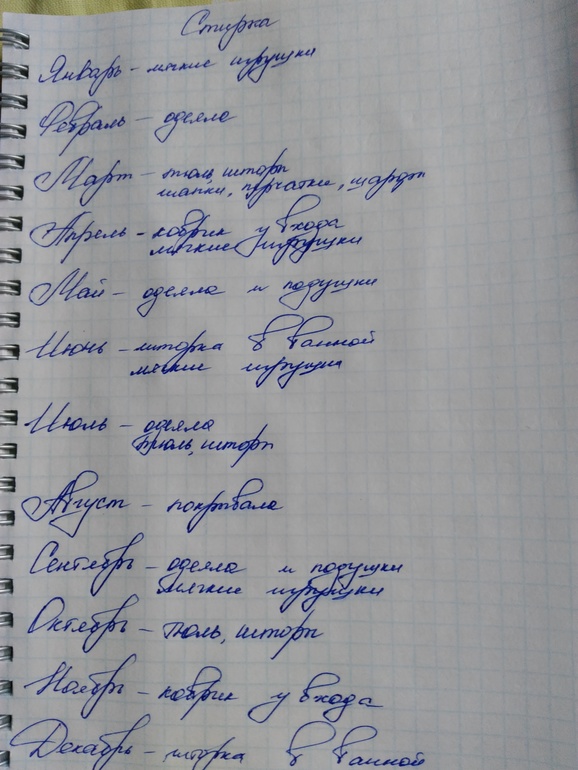 Стирка
Январь - мягкие игрушки
Февраль - одеяла
Март - тюль, шторы
шапки, перчатки, шарфы
Апрель - коврик у входа
мягкие игрушки
Май - одеяла и подушки
Июнь - шторка в ванной
мягкие игрушки
Июль - одеяла
тюль, шторы
Август - покрывала
Сентябрь - одеяла и подушки
мягкие игрушки
Октябрь - тюль, шторы
Ноябрь - коврик у входа
Декабрь - шторка в ванной